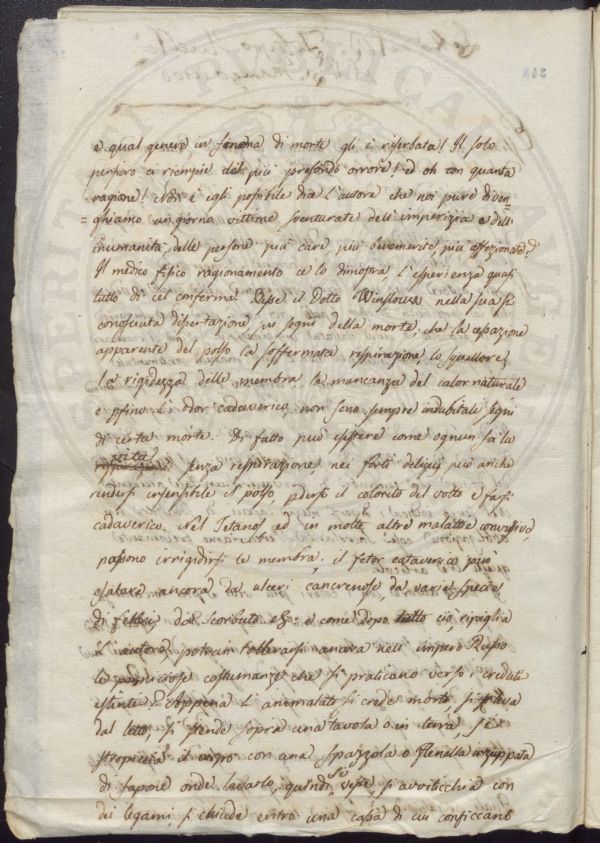 e qual genere in somma di morte gli è riserbata! Il solo
pensiero ci riempie del più profondo orrore! ed oh con quanta
ragione! Non è egli possibile dice l'autore che noi pure diven-
=ghiamo un giorno vittime sventurate dell'imperizia e dell'
inumanità, delle persone più care, più benemerite, più affezionate?
Il medico fisico ragionamento ce lo dimostra l'esperienza quasi
tutto dì cel conferma. Disse il Dotto Winslow nella sua sì
conosciuta dissertazione su segni della morte, che la cessazione
apparente del polso la soffermata respirazione, lo squallore,
la rigidezza delle membra la mancanza del calor naturale
e pfino l'odor cadaverico, non sono sempre indubitati segni
di certa morte. Di fatto può essere come ognun sa la
vita
respirazione senza respirazione nei forti deliqui può anche
rendersi insensibile il polso, pdersi il colorito del volto e farsi
cadaverico. Nel Tetano ed in molte altre malattie convulsive,
possono irrigidirsi le membra, il fetor cadaverico può
esalare ancora da ulceri cancrenose, da varie specie
di febbri, dal Scorbuto &c: e come dopo tutto ciò, ripiglia
l'autore, potevan tollerarsi ancora nell'impero Russo
le perniciose costumanze che si praticano verso i creduti
estinti? Appena l'ammalato si crede morto, si leva
dal letto si stende sopra una tavola o in terra, se
stropiccia il corpo con una spazzola o flanella inzuppata
di sapone onde lavarlo, quindi si veste, si avviticchia con
dei legami, si chiude entro una cassa di cui conficcano